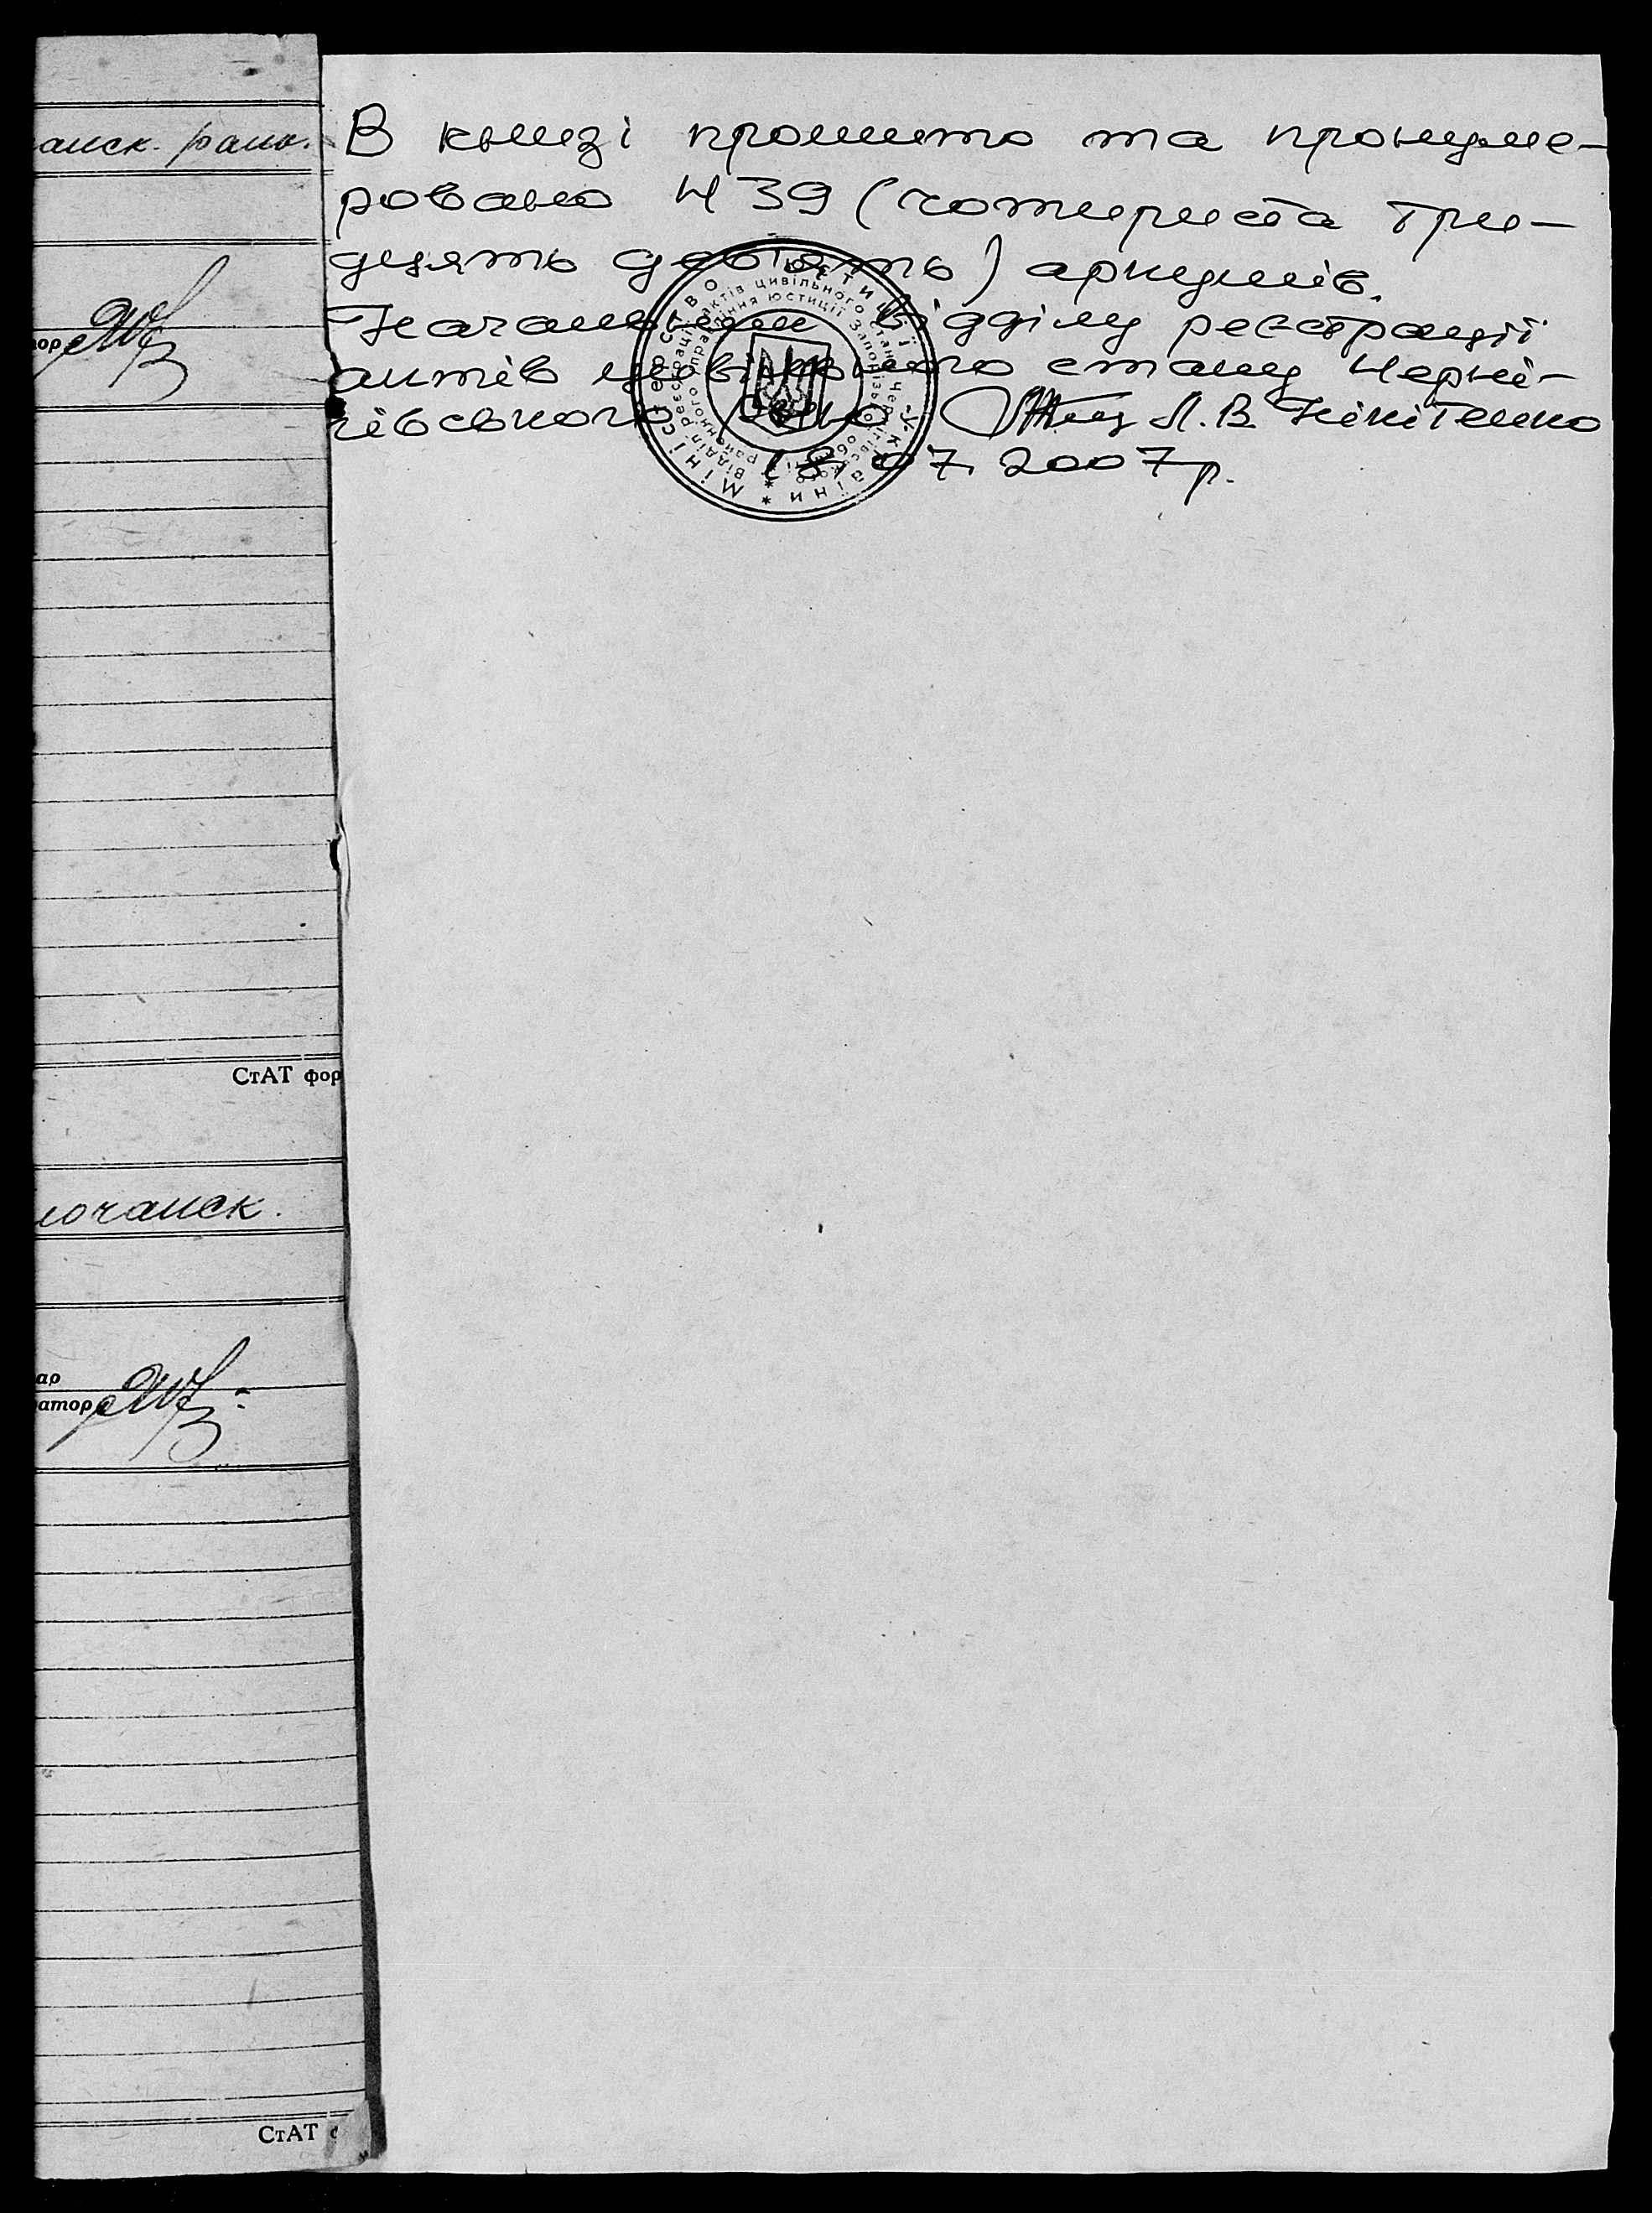 анск. рано.
ор
СтАТ фор
лочанск.
ар
ратор
СтАТ
В книзі прошито та пронуме-
ровано 439 (чотириста три-
дцять девять) аркушів.
Начальник відділу реєстрації
актів цивільного стану Черні-
гівського Л. В. Нікітенко
18.07.2007р.
Міністерство юстиції України *
Відділ реєстрації актів цивільного стану Чернігівського
районного управління юстиції Запорізької області *